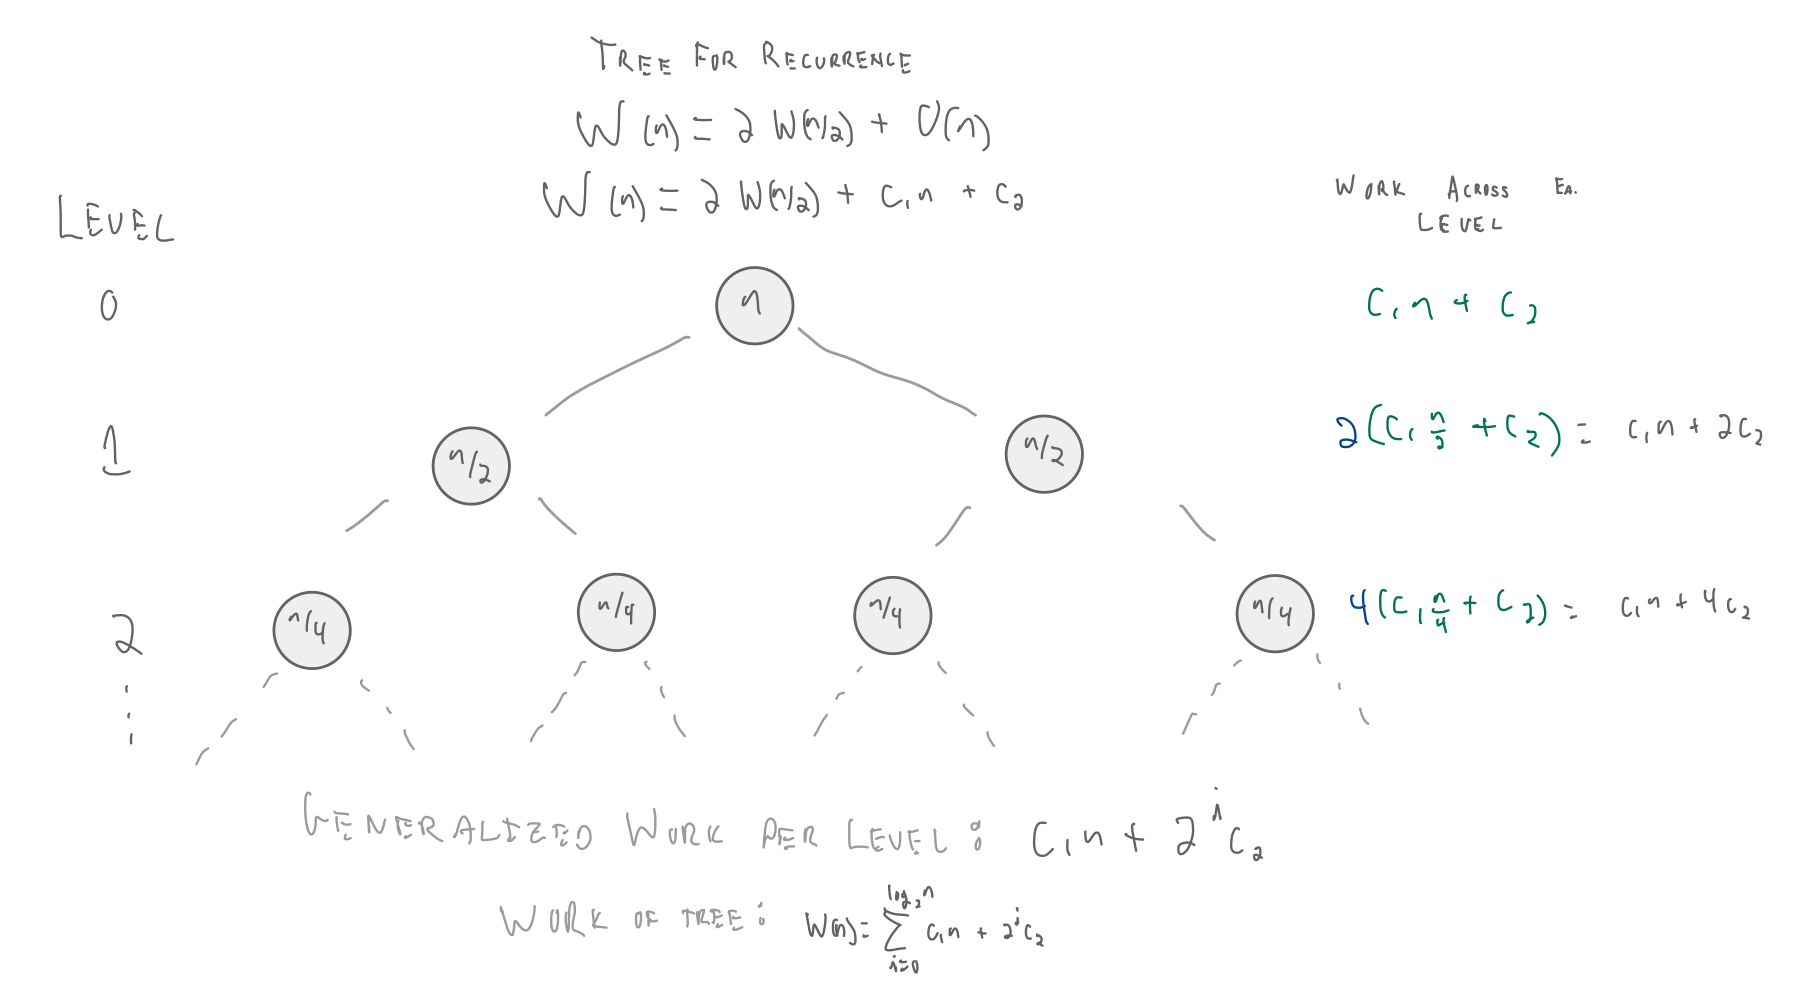 TREE FOR RECURRENCE
W(n) = 2 W(n/2) + O(n)
W(n) = 2 W(n/2) + C₁n + C₂
LEVEL
WORK ACROSS EA.
LEVEL
0
n
C₁n + C₂
1
n/2
n/2
2(C₁ n/2 + C₂) = C₁n + 2C₂
2
n/4
n/4
n/4
n/4
4(C₁ n/4 + C₂) = C₁n + 4C₂
⋮
GENERALIZED WORK PER LEVEL: C₁n + 2ⁱC₂
WORK OF TREE: W(n) = ∑_{i=0}^{log₂n} C₁n + 2ⁱC₂